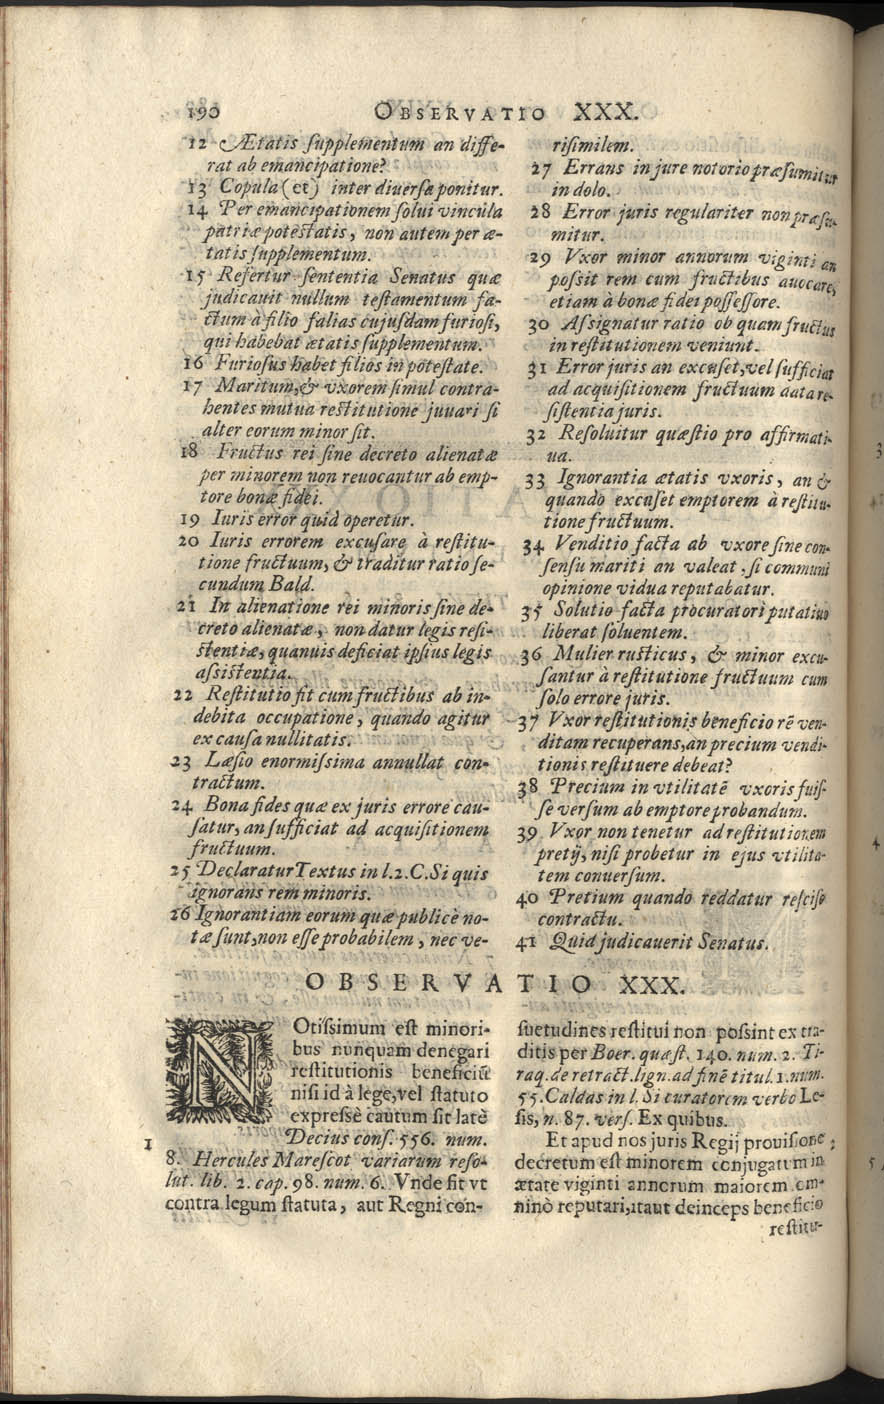 190 OBSERVATIO XXX.
12 Ætatis ſupplementum an diffe-
rat ab emancipatione?
13 Copula (et) inter diuerſa ponitur.
14 Per emancipationem ſolui vincula
patriæ poteſtatis, non autem per æ-
tatis ſupplementum.
15 Refertur ſententia Senatus quæ
judicauit nullum teſtamentum fa-
ctum à filio falias cujuſdam furioſi,
qui habebat ætatis ſupplementum.
16 Furioſus habet filios in poteſtate.
17 Maritum, & vxorem ſimul contra-
hentes mutua reſtitutione juuari ſi
alter eorum minor ſit.
18 Fructus rei ſine decreto alienatæ
per minorem non reuocantur ab emp-
tore bonæ fidei.
19 Iuris error quid operetur.
20 Iuris errorem excuſare à reſtitu-
tione fructuum, & traditur ratio ſe-
cundum Bald.
21 In alienatione rei minoris ſine de-
creto alienatæ, non datur legis reſi-
ſtentiæ, quanuis deficiat ipſius legis
aſsiſtentia.
22 Reſtitutio fit cum fructibus ab in-
debita occupatione, quando agitur
ex cauſa nullitatis.
23 Læſio enormiſsima annullat con-
tractum.
24 Bona fides quæ ex juris errore cau-
ſatur, an ſufficiat ad acquiſitionem
fructuum.
25 Declaratur Textus in l.2.C.Si quis
ignorans rem minoris.
26 Ignorantiam eorum quæ publicè no-
tæ ſunt, non eſſe probabilem, nec ve-
riſimilem.
27 Errans in jure notorio præſumitur
in dolo.
28 Error juris regulariter non præſu-
mitur.
29 Vxor minor annorum viginti an
poſsit rem cum fructibus auocare,
etiam à bonæ fidei poſſeſſore.
30 Aſsignatur ratio ob quam fructus
in reſtitutionem veniunt.
31 Error juris an excuſet, vel ſufficiat
ad acquiſitionem fructuum data re-
ſiſtentia juris.
32 Reſoluitur quæſtio pro affirmati-
ua.
33 Ignorantia ætatis vxoris, an &
quando excuſet emptorem à reſtitu-
tione fructuum.
34 Venditio facta ab vxore ſine con-
ſenſu mariti an valeat, ſi communi
opinione vidua reputabatur.
35 Solutio facta procuratori putatiuo
liberat ſoluentem.
36 Mulier ruſticus, & minor excu-
ſantur à reſtitutione fructuum cum
ſolo errore juris.
37 Vxor reſtitutionis beneficio rẽ ven-
ditam recuperans, an precium vendi-
tionis reſtituere debeat?
38 Precium in vtilitatẽ vxoris fuiſ-
ſe verſum ab emptore probandum.
39 Vxor non tenetur ad reſtitutionem
pretij, niſi probetur in ejus vtilita-
tem conuerſum.
40 Pretium quando reddatur reſciſo
contractu.
41 Quid judicauerit Senatus.
OBSERVATIO XXX.
NOtiſsimum eſt minori-
bus nunquam denegari
reſtitutionis beneficiũ
niſi id à lege, vel ſtatuto
expreſsè cautum ſit latè
1 Decius conſ. 556. num.
8. Hercules Mareſcot variarum reſo-
lut. lib. 2. cap. 98. num. 6. Vnde fit vt
contra legum ſtatuta, aut Regni con-
ſuetudines reſtitui non poſsint ex tra-
ditis per Boer. quæſt. 140. num. 2. Ti-
raq. de retract. lign. ad finẽ titul. 1. num.
55. Caldas in l. Si curatorem verbo Le-
ſis, n. 87. verſ. Ex quibus.
Et apud nos juris Regij prouiſione
decretum eſt minorem conjugatum in
ætate viginti annorum maiorem om-
ninò reputari, itaut deinceps beneficio
reſtitu-